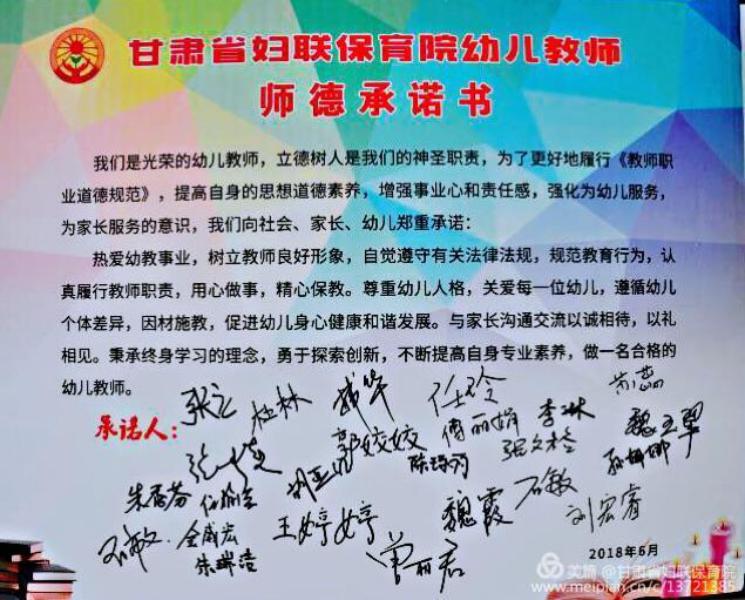 甘肃省妇联保育院幼儿教师
师德承诺书
我们是光荣的幼儿教师，立德树人是我们的神圣职责，为了更好地履行《教师职
业道德规范》，提高自身的思想道德素养，增强事业心和责任感，强化为幼儿服务，
为家长服务的意识，我们向社会、家长、幼儿郑重承诺：
热爱幼教事业，树立教师良好形象，自觉遵守有关法律法规，规范教育行为，认
真履行教师职责，用心做事，精心保教。尊重幼儿人格，关爱每一位幼儿，遵循幼儿
个体差异，因材施教，促进幼儿身心健康和谐发展。与家长沟通交流以诚相待，以礼
相见。秉承终身学习的理念，勇于探索创新，不断提高自身专业素养，做一名合格的
幼儿教师。
承诺人：
杜林 任玲
郭姣姣 傅丽娟 李琳
朱香芬 石敏
王婷婷 魏霞 刘宏睿
朱琳洁 曾丽君
2018年6月
美篇 @甘肃省妇联保育院
www.meipian.cn/c/13721385